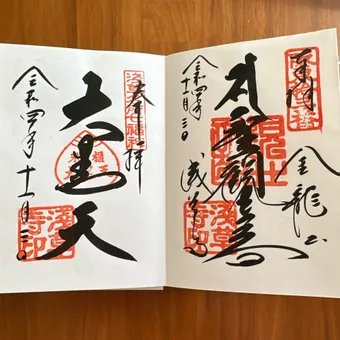 奉拝
金龍山
聖観世音
令和四年
十一月三日
浅草寺
浅草寺印
奉拝
浅草名所七福神
大黒天
令和四年十一月三日
浅草寺印